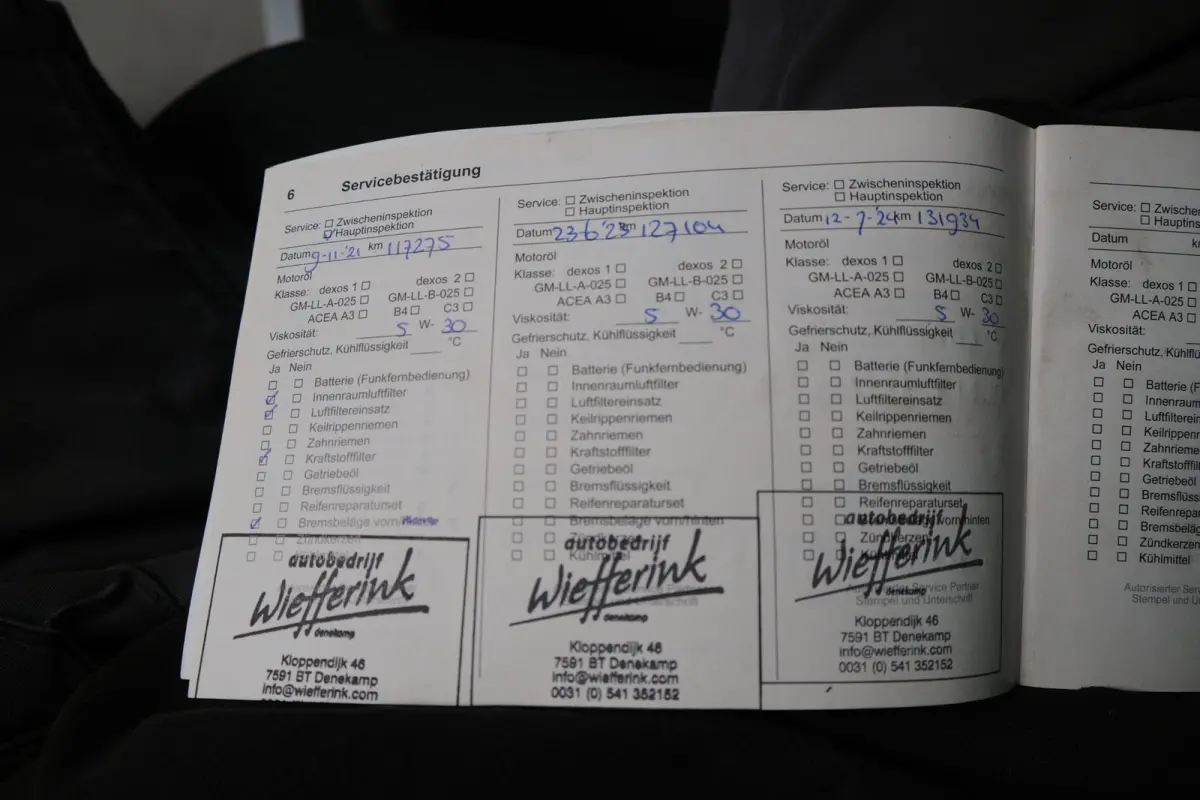 6 Servicebestätigung
Service: ☐ Zwischeninspektion
☑ Hauptinspektion
Datum 9-11-'21 km 117275
Motoröl
Klasse: dexos 1 ☐ dexos 2 ☐
GM-LL-A-025 ☐ GM-LL-B-025 ☐
ACEA A3 ☐ B4 ☐ C3 ☐
Viskosität: 5 W- 30
Gefrierschutz, Kühlflüssigkeit ____ °C
Ja Nein
☐ ☐ Batterie (Funkfernbedienung)
☑ ☐ Innenraumluftfilter
☑ ☐ Luftfiltereinsatz
☐ ☐ Keilrippenriemen
☐ ☐ Zahnriemen
☑ ☐ Kraftstofffilter
☐ ☐ Getriebeöl
☐ ☐ Bremsflüssigkeit
☐ ☐ Reifenreparaturset
☑ ☐ Bremsbeläge vorn/
☐ ☐ Zündkerzen
☐ ☐ Kühlmittel
autobedrijf
Wiefferink
denekamp
Kloppendijk 46
7591 BT Denekamp
info@wiefferink.com
Service: ☐ Zwischeninspektion
☐ Hauptinspektion
Datum 23-6-'23 km 127104
Motoröl
Klasse: dexos 1 ☐ dexos 2 ☐
GM-LL-A-025 ☐ GM-LL-B-025 ☐
ACEA A3 ☐ B4 ☐ C3 ☐
Viskosität: 5 W- 30
Gefrierschutz, Kühlflüssigkeit ____ °C
Ja Nein
☐ ☐ Batterie (Funkfernbedienung)
☐ ☐ Innenraumluftfilter
☐ ☐ Luftfiltereinsatz
☐ ☐ Keilrippenriemen
☐ ☐ Zahnriemen
☐ ☐ Kraftstofffilter
☐ ☐ Getriebeöl
☐ ☐ Bremsflüssigkeit
☐ ☐ Reifenreparaturset
☐ ☐ Bremsbeläge vorn/hinten
☐ ☐ Zündkerzen
☐ ☐ Kühlmittel
autobedrijf
Wiefferink
denekamp
Kloppendijk 46
7591 BT Denekamp
info@wiefferink.com
0031 (0) 541 352152
Service: ☐ Zwischeninspektion
☐ Hauptinspektion
Datum 12-7-'24 km 131934
Motoröl
Klasse: dexos 1 ☐ dexos 2 ☐
GM-LL-A-025 ☐ GM-LL-B-025 ☐
ACEA A3 ☐ B4 ☐ C3 ☐
Viskosität: 5 W- 30
Gefrierschutz, Kühlflüssigkeit ____ °C
Ja Nein
☐ ☐ Batterie (Funkfernbedienung)
☐ ☐ Innenraumluftfilter
☐ ☐ Luftfiltereinsatz
☐ ☐ Keilrippenriemen
☐ ☐ Zahnriemen
☐ ☐ Kraftstofffilter
☐ ☐ Getriebeöl
☐ ☐ Bremsflüssigkeit
☐ ☐ Reifenreparaturset
☐ ☐ Bremsbeläge vorn/hinten
☐ ☐ Zündkerzen
autobedrijf
Wiefferink
denekamp
Autorisierter Service Partner
Stempel und Unterschrift
Kloppendijk 46
7591 BT Denekamp
info@wiefferink.com
0031 (0) 541 352152
Service: ☐ Zwisch
☐ Hauptins
Datum k
Motoröl
Klasse: dexos 1 ☐
GM-LL-A-025 ☐
ACEA A3 ☐
Viskosität:
Gefrierschutz, Kühlflü
Ja Nein
☐ ☐ Batterie (F
☐ ☐ Innenraum
☐ ☐ Luftfilterein
☐ ☐ Keilrippenr
☐ ☐ Zahnrieme
☐ ☐ Kraftstofffil
☐ ☐ Getriebeöl
☐ ☐ Bremsflüss
☐ ☐ Reifenrepar
☐ ☐ Bremsbeläg
☐ ☐ Zündkerzen
☐ ☐ Kühlmittel
Autorisierter Serv
Stempel und U